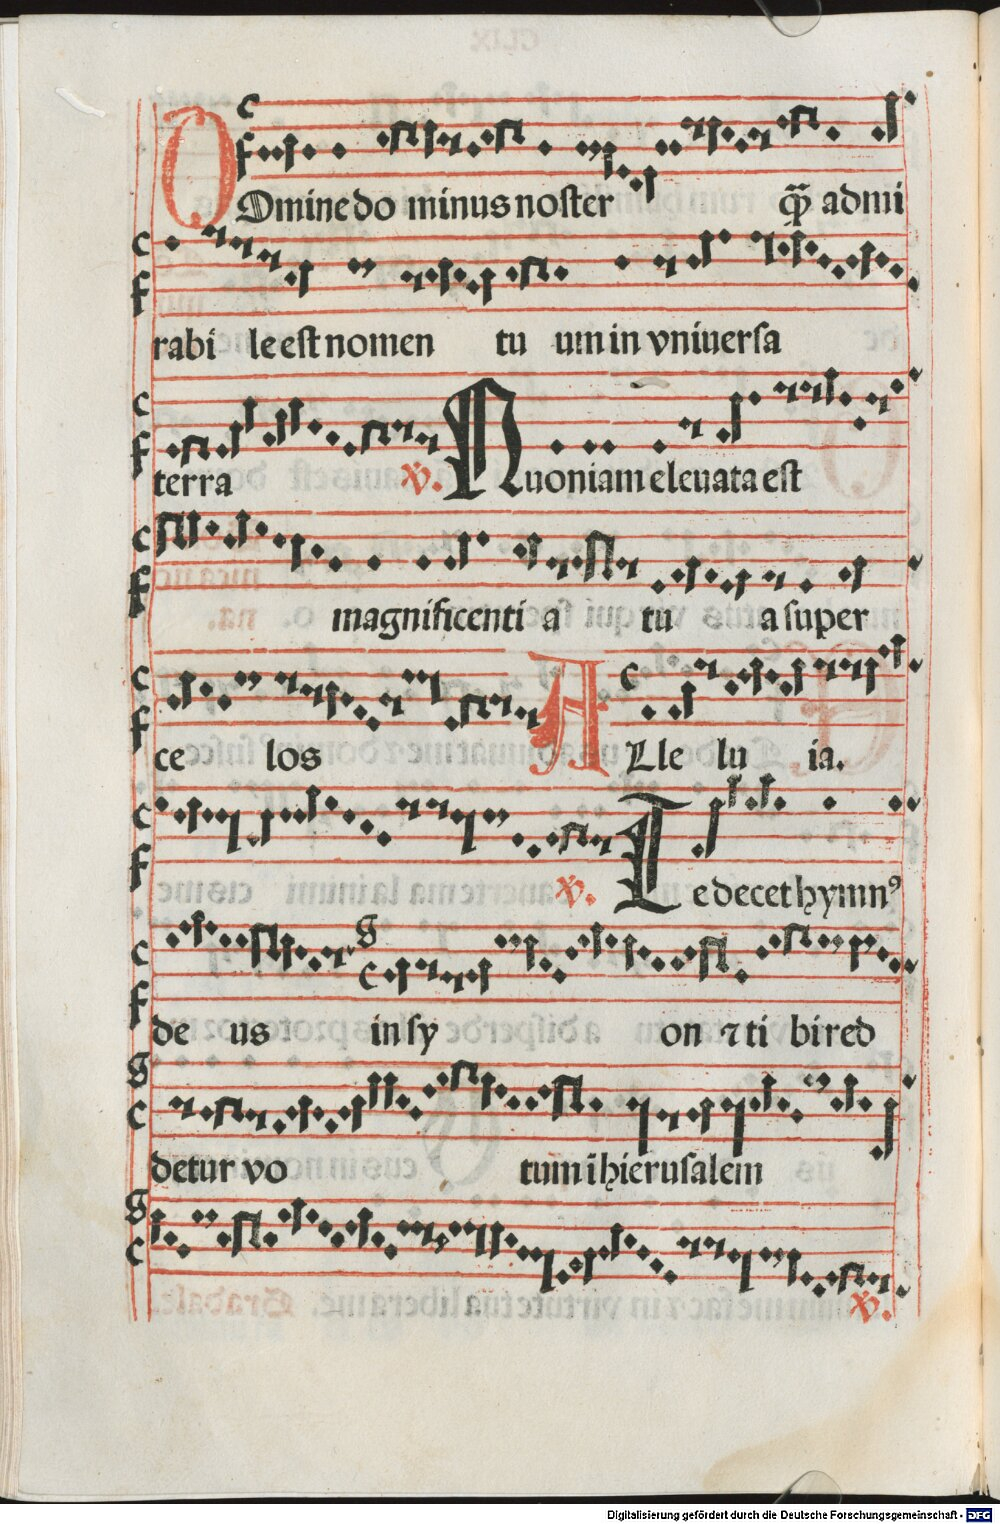 Domine do minus noster q̄ȝ admi
rabi le est nomen tu um in vniuersa
terra ꝟ. Quoniam eleuata est
magnificenti a tu a super
ce los A Lle lu ia.
ꝟ. Te decet hymnꝰ
de us in sy on ⁊ ti bi red
detur vo tum ī hierusalem
ꝟ.
Digitalisierung gefördert durch die Deutsche Forschungsgemeinschaft - DFG